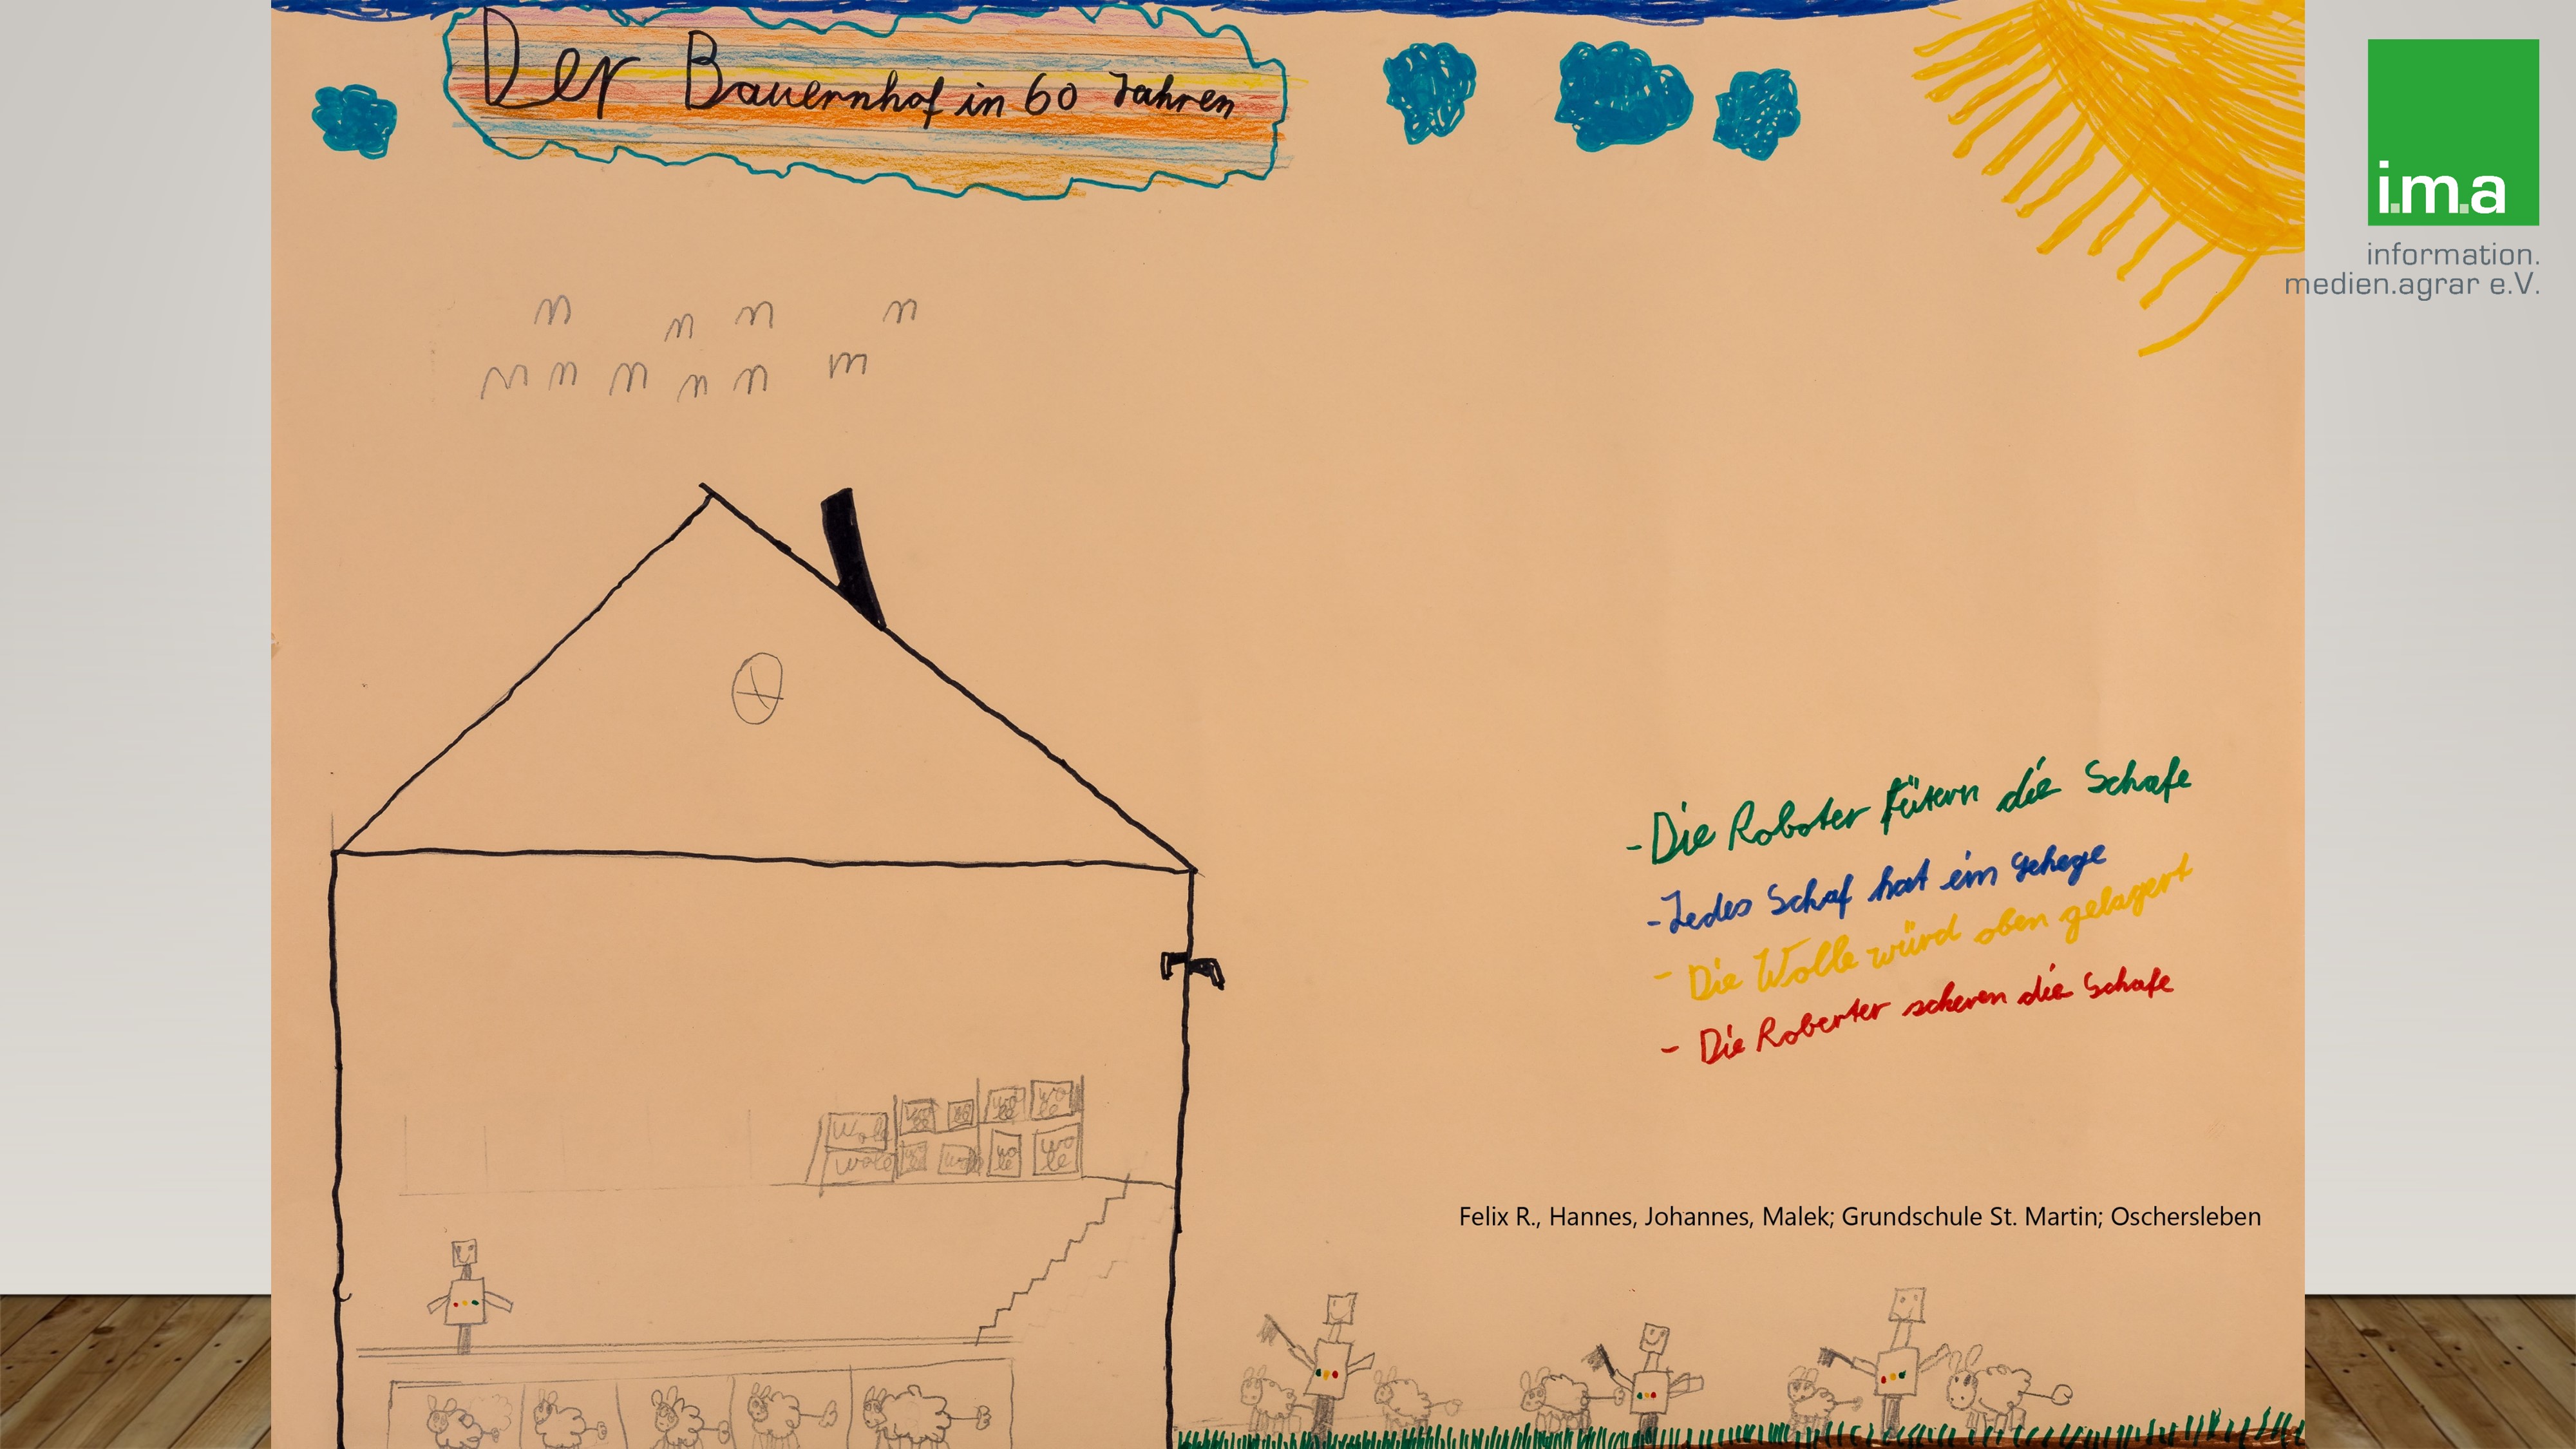 Der Bauernhof in 60 Jahren
i.m.a
information.
medien.agrar e.V.
-Die Roboter fütern die Schafe
-Jedes Schaf hat ein gehege
- Die Wolle würd oben gelagert
- Die Roberter scheren die Schafe
Wole
wole
Felix R., Hannes, Johannes, Malek; Grundschule St. Martin; Oschersleben